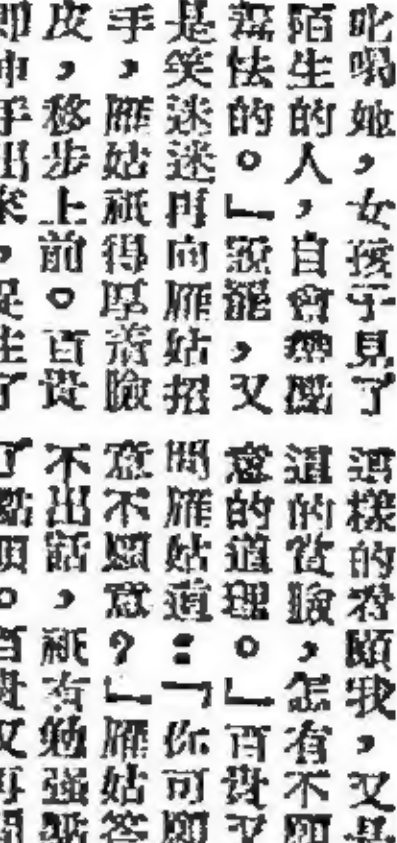 叱喝她，女孩子見了
陌生的人，自會
羞怯的。」說罷，又
是笑迷迷再向雁姑招
手，雁姑祇得厚着臉
皮，移步上前。百貴
手出來，
這樣的看顧我，又是
這的賞臉，怎有不願
意的道理。」百貴又
問雁姑道：「你可願
意不願意？」雁姑答
不出話，祇有勉强
了點頭。百貴又再問